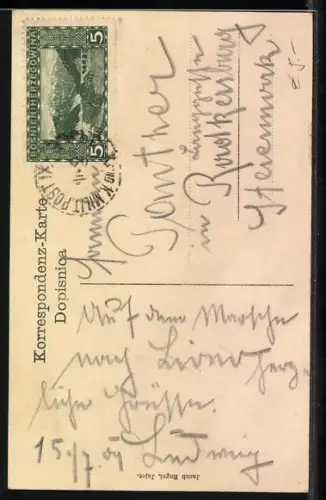 BOSNIEN-HERZEGOWINA
5 5
K. u. K. MILIT. POST
Korrespondenz-Karte
Dopisnica
Panther
in Radkersburg
Steiermark
£5.-
Auf dem Marsche
nach Livno herz-
liche Grüsse
15./7. 09 Ludwig
Jacob Engel, Jajce.